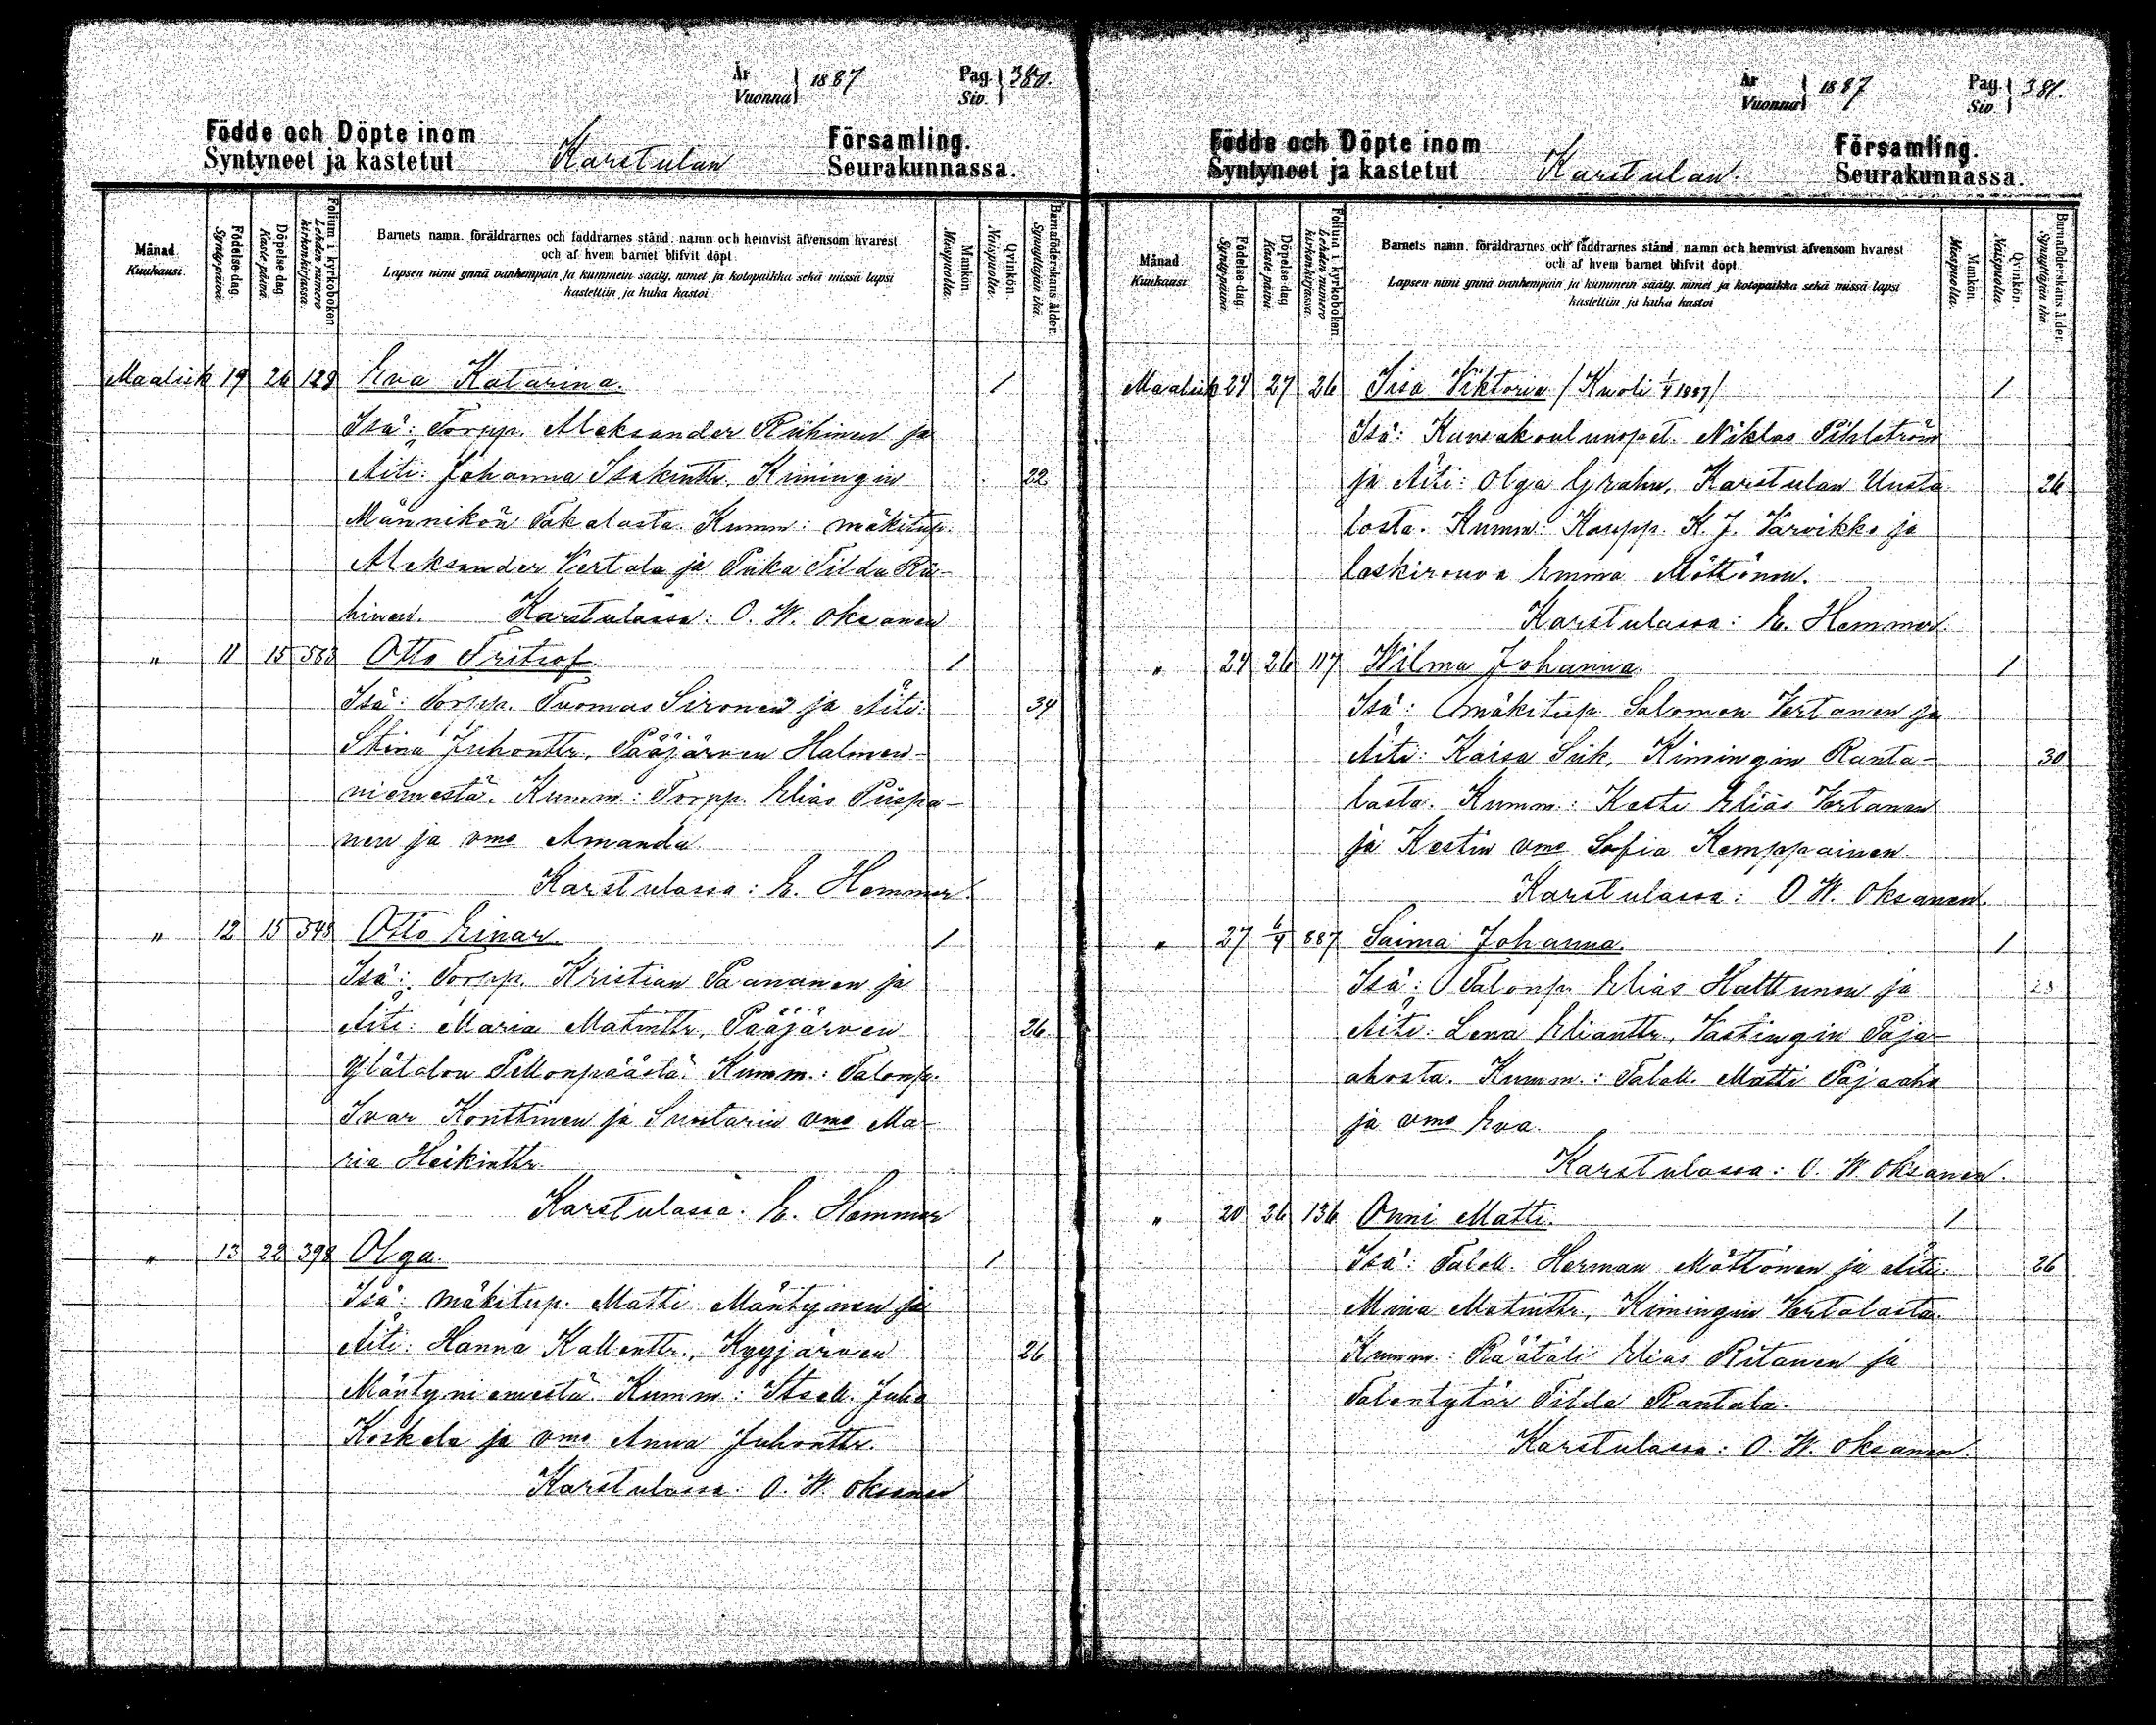 År Vuonna 1887 Pag. Siv. 380.
Födde och Döpte inom Församling.
Syntyneet ja kastetut Karstulan Seurakunnassa.
Månad. Kuukausi.
Födelse-dag. Synty-päivä.
Döpelse-dag. Kaste-päivä.
Folium i kyrkoboken Lehden numero kirkonkirjassa.
Barnets namn, föräldrarnes och faddrarnes stånd, namn och hemvist äfvensom hvarest
och af hvem barnet blifvit döpt
Lapsen nimi ynnä vanhempain ja kummein sääty, nimet ja kotopaikka sekä missä lapsi
kastettiin ja kuka kastoi
Mankön. Miespuolia.
Qvinkön. Naispuolia.
Barnaföderskans ålder. Synnyttäjän ikä.
Maalisk 19 26 128 Eva Katarina. 1
Isä: Torpp. Aleksander Riihinen ja
Äiti: Johanna Isakintr. Kimingin 22
Männikön Takalasta. Kumm: mäkitup.
Aleksander Vertala ja Piika Tilda Rii-
hinen. Karstulassa: O. W. Oksanen
" 11 15 563 Otto Fritiof. 1
Isä: Torpp. Tuomas Sironen ja Äiti: 34
Stina Juhontr. Pääjärven Halmen-
niemestä. Kumm: Torpp. Elias Piispa-
nen ja vmo Amanda
Karstulassa: E. Hemmer.
" 12 15 548 Otto Einar. 1
Isä: Torpp. Kristian Paananen ja
Äiti: Maria Matintr. Pääjärven 26
Ylätalon Pellonpäästä. Kumm: Talonp.
Ivar Konttinen ja Suntarin vmo Ma-
ria Heikintr.
Karstulassa: E. Hemmer
" 13 22 398 Olga. 1
Isä: mäkitup. Matti Mäntynen ja
Äiti: Hanna Kallentr., Kyyjärven 26
Mäntyniemestä. Kumm: Itsell. Juho
Koskela ja vmo Anna Juhontr.
Karstulassa: O. W. Oksanen
År Vuonna 1887 Pag. Siv. 381.
Födde och Döpte inom Församling.
Syntyneet ja kastetut Karstulan. Seurakunnassa.
Månad Kuukausi
Födelse-dag. Synty-päivä.
Döpelse-dag. Kaste-päivä.
Folium i kyrkoboken Lehden numero kirkonkirjassa.
Barnets namn, föräldrarnes och faddrarnes stånd, namn och hemvist äfvensom hvarest
och af hvem barnet blifvit döpt
Lapsen nimi ynnä vanhempain ja kummein sääty, nimet ja kotopaikka sekä missä lapsi
kastettiin ja kuka kastoi
Mankön. Miespuolia.
Qvinkön. Naispuolia.
Barnaföderskans ålder. Synnyttäjän ikä.
Maalisk 24 27 26 Iisa Viktoria /Kuoli 1/4 1887/ 1
Isä: Kansakoulunopet. Niklas Pihlström
ja Äiti: Olga Grahn, Karstulan Uusta 26
losta. Kumm: Kaupp. K. J. Varvikko ja
leskirouva Emma Möttönen.
Karstulassa: E. Hemmer.
" 24 26 117 Wilma Johanna. 1
Isä: mäkitup. Salomon Vertanen ja
Äiti: Kaisa Siik, Kimingin Ranta- 30
lasta. Kumm: Kesti Elias Vertanen
ja Kestin vmo Sofia Kemppainen.
Karstulassa: O W. Oksanen.
" 27 6/4 887 Saima Johanna. 1
Isä: Talonp. Elias Hulttunen ja 28
Äiti: Lena Eliantr, Vastingin Paja-
ahosta. Kumm: Taloll. Matti Pajaaho
ja vmo Eva.
Karstulassa: O. W. Oksanen.
" 20 26 136 Onni Matti. 1
Isä: Taloll. Herman Möttönen ja Äiti: 26
Miina Matintr, Kimingin Vertalasta.
Kumm: Räätäli Elias Ritanen ja
Talontytär Tilda Rantala.
Karstulassa: O. W. Oksanen.